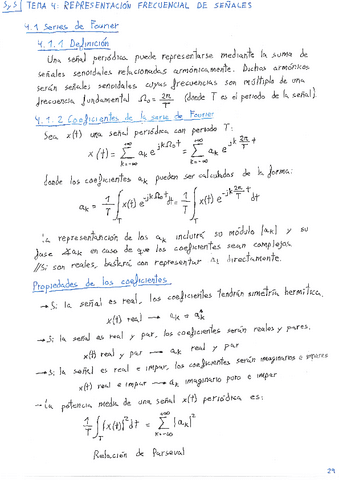 SyS TEMA 4: REPRESENTACIÓN FRECUENCIAL DE SEÑALES
4.1 Series de Fourier
4.1.1 Definición
Una señal periódica puede representarse mediante la suma de
señales senoidales relacionadas armónicamente. Dichos armónicos
serán señales senoidales cuyas frecuencias son múltiplo de una
frecuencia fundamental Ω₀ = 2π/T (donde T es el periodo de la señal).
4.1.2 Coeficientes de la serie de Fourier
Sea x(t) una señal periódica con periodo T:
x(t) = ∑_{k=-∞}^{+∞} a_k e^{jkΩ₀t} = ∑_{k=-∞}^{+∞} a_k e^{jk(2π/T)t}
donde los coeficientes a_k pueden ser calculados de la forma:
a_k = 1/T ∫_T x(t) e^{-jkΩ₀t} dt = 1/T ∫_T x(t) e^{-jk(2π/T)t} dt
La representación de los a_k incluirá su módulo |a_k| y su
fase ∡a_k en caso de que los coeficientes sean complejos.
//Si son reales, bastará con representar a_k directamente.
Propiedades de los coeficientes
→ Si la señal es real, los coeficientes tendrán simetría hermítica.
x(t) real → a_k = a*_{-k}
→ Si la señal es real y par, los coeficientes serán reales y pares.
x(t) real y par → a_k real y par
→ Si la señal es real e impar, los coeficientes serán imaginarios e impares
x(t) real e impar → a_k imaginario puro e impar
→ La potencia media de una señal x(t) periódica es:
1/T ∫_T |x(t)|² dt = ∑_{k=-∞}^{+∞} |a_k|²
Relación de Parseval
29